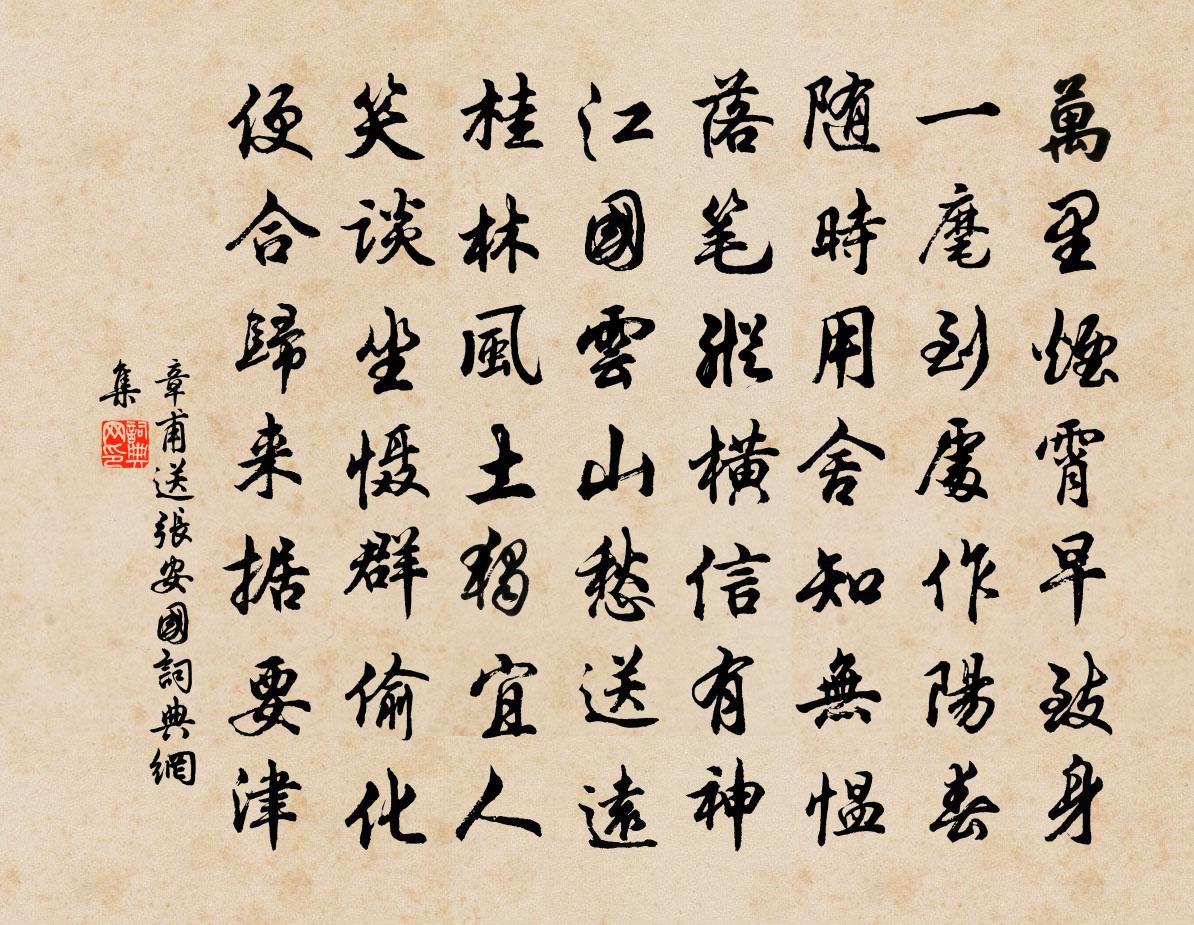 萬里煙霄早致身
一麾到處作陽春
随時用舍知無愠
落笔縱橫信有神
江國雲山愁送遠
桂林風土獨宜人
笑談坐慑群偷化
便合歸来据要津
章甫送張安國詞典網
集
詞典
网印